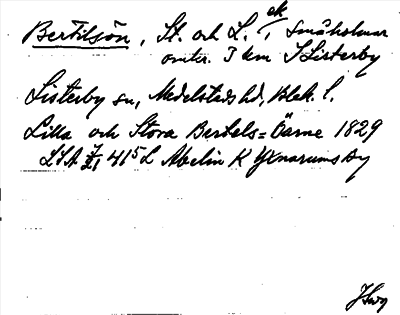 Bertilsön, St. och L., ek Småholmar
omkr. 3 km S Listerby
Listerby sn, Medelstads hd, Blek. l.
Lilla och Stora Bertels=Öarne 1829
LSA 415 L Abelin K Yxnarums by